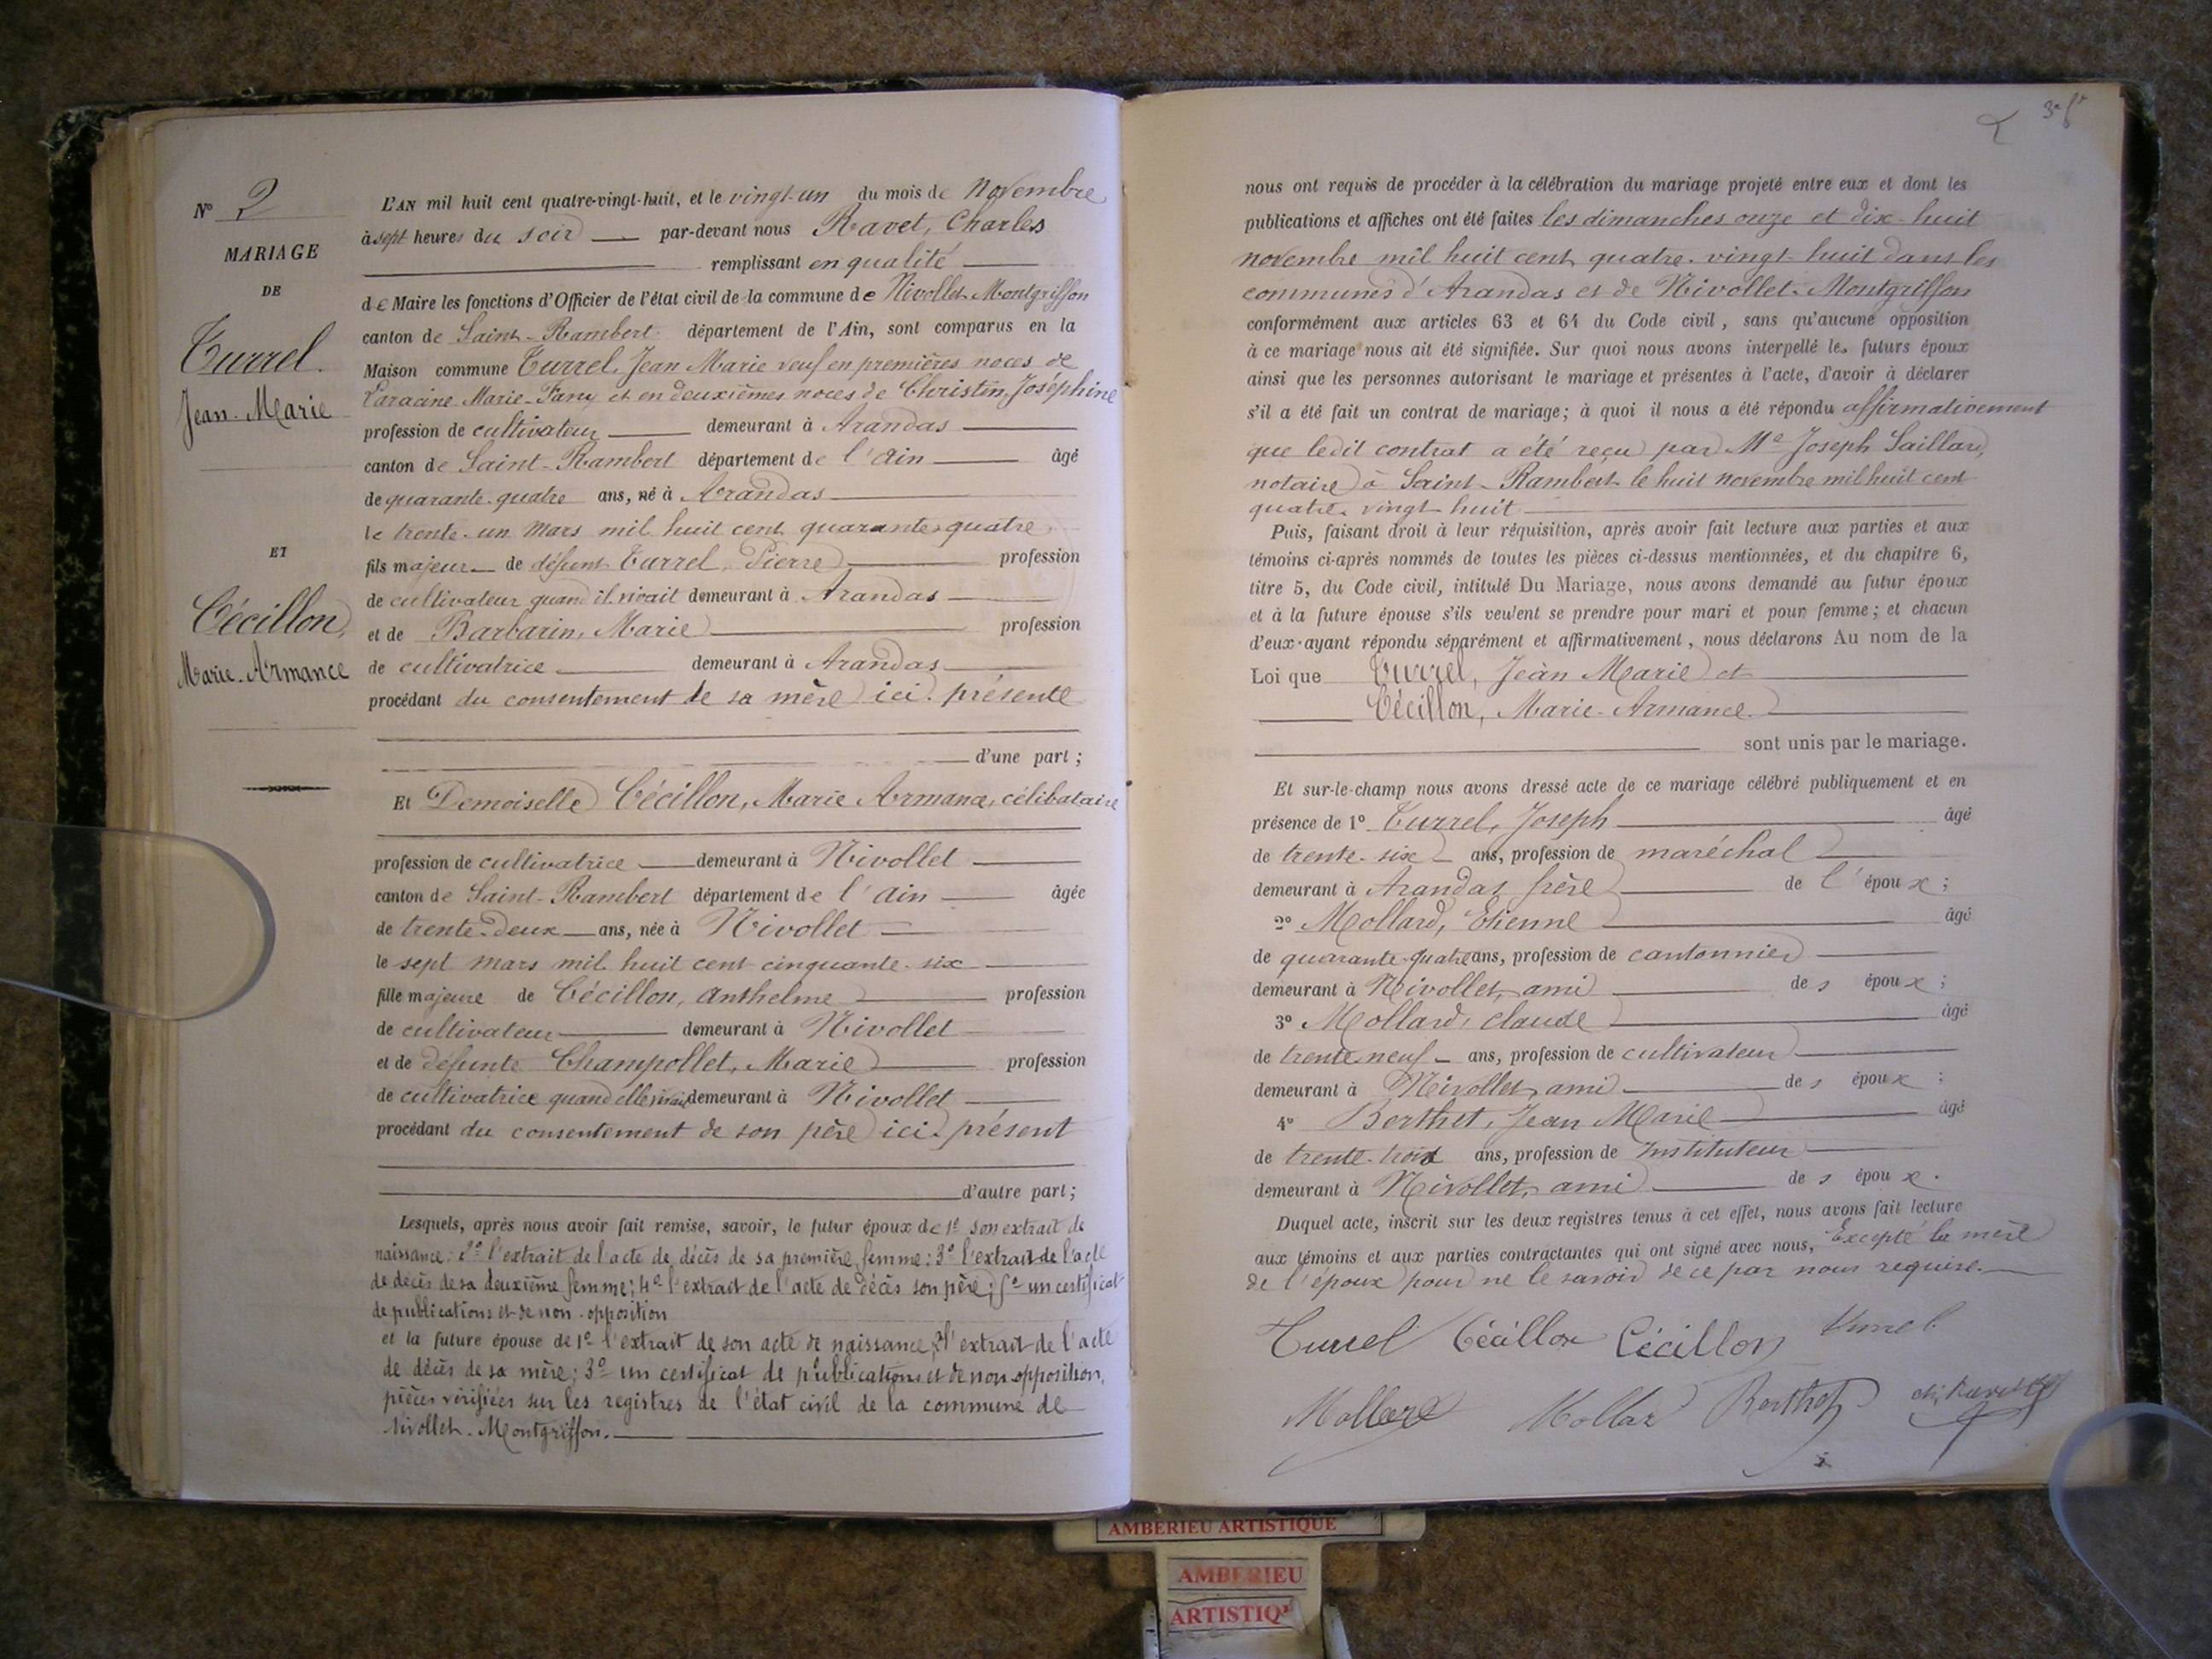 N° 2
MARIAGE
DE
Turrel.
Jean-Marie
ET
Cécillon,
Marie-Armance
L'AN mil huit cent quatre-vingt-huit, et le vingt-un du mois de Novembre
à sept heures du soir par-devant nous Ravet, Charles
remplissant en qualité
de Maire les fonctions d'Officier de l'état civil de la commune de Nivollet-Montgriffon
canton de Saint-Rambert département de l'Ain, sont comparus en la
Maison commune Turrel, Jean Marie veuf en premières noces de
Laracine Marie-Fany et en deuxièmes noces de Christin Joséphine
profession de cultivateur demeurant à Arandas
canton de Saint-Rambert département de l'Ain âgé
de quarante-quatre ans, né à Arandas
le trente-un mars mil huit cent quarante-quatre
fils majeur de défunt Turrel, Pierre profession
de cultivateur quand il vivait demeurant à Arandas
et de Barbarin, Marie profession
de cultivatrice demeurant à Arandas
procédant du consentement de sa mère ici présente
d'une part ;
Et Demoiselle Cécillon, Marie Armance, célibataire
profession de cultivatrice demeurant à Nivollet
canton de Saint-Rambert département de l'Ain âgée
de trente-deux ans, née à Nivollet
le sept mars mil huit cent cinquante-six
fille majeure de Cécillon, Anthelme profession
de cultivateur demeurant à Nivollet
et de défunte Champollet, Marie profession
de cultivatrice quand elle vivait demeurant à Nivollet
procédant du consentement de son père ici présent
d'autre part ;
Lesquels, après nous avoir fait remise, savoir, le futur époux de 1° son extrait de
naissance: 2° l'extrait de l'acte de décès de sa première femme: 3° l'extrait de l'acte
de décès de sa deuxième femme; 4° l'extrait de l'acte de décès son père; 5° un certificat
de publications et de non-opposition
et la future épouse de 1° l'extrait de son acte de naissance, 2° l'extrait de l'acte
de décès de sa mère; 3° un certificat de publications et de non opposition,
pièces vérifiées sur les registres de l'état civil de la commune de
Nivollet-Montgriffon.
nous ont requis de procéder à la célébration du mariage projeté entre eux et dont les
publications et affiches ont été faites les dimanches onze et dix-huit
novembre mil huit cent quatre-vingt-huit dans les
communes d'Arandas et de Nivollet-Montgriffon
conformément aux articles 63 et 64 du Code civil, sans qu'aucune opposition
à ce mariage nous ait été signifiée. Sur quoi nous avons interpellé les futurs époux
ainsi que les personnes autorisant le mariage et présentes à l'acte, d'avoir à déclarer
s'il a été fait un contrat de mariage; à quoi il nous a été répondu affirmativement
que ledit contrat a été reçu par Me Joseph Saillard,
notaire à Saint-Rambert le huit novembre mil huit cent
quatre-vingt-huit
Puis, faisant droit à leur réquisition, après avoir fait lecture aux parties et aux
témoins ci-après nommés de toutes les pièces ci-dessus mentionnées, et du chapitre 6,
titre 5, du Code civil, intitulé Du Mariage, nous avons demandé au futur époux
et à la future épouse s'ils veulent se prendre pour mari et pour femme; et chacun
d'eux ayant répondu séparément et affirmativement, nous déclarons Au nom de la
Loi que Turrel, Jean Marie et
Cécillon, Marie-Armance
sont unis par le mariage.
Et sur-le-champ nous avons dressé acte de ce mariage célébré publiquement et en
présence de 1° Turrel, Joseph âgé
de trente-six ans, profession de maréchal
demeurant à Arandas frère de l'époux;
2° Mollard, Etienne âgé
de quarante-quatre ans, profession de cantonnier
demeurant à Nivollet, ami des époux;
3° Mollard, Claude âgé
de trente neuf ans, profession de cultivateur
demeurant à Nivollet, ami des époux;
4° Berthet, Jean Marie âgé
de trente-trois ans, profession de Instituteur
demeurant à Nivollet, ami des époux.
Duquel acte, inscrit sur les deux registres tenus à cet effet, nous avons fait lecture
aux témoins et aux parties contractantes qui ont signé avec nous, Excepté la mère
de l'époux pour ne le savoir de ce par nous requise.
Turrel Cécillon Cécillon Turrel
Mollard Mollar Berthet Ch. Ravet
AMBERIEU ARTISTIQUE
AMBERIEU
ARTISTIQ